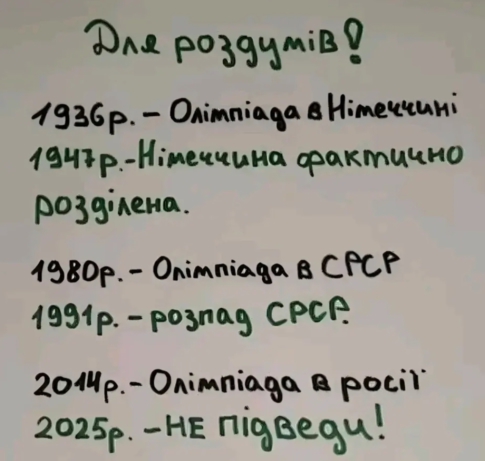 Для роздумів!
1936р. - Олімпіада в Німеччині
1947р. - Німеччина фактично
розділена.
1980р. - Олімпіада в СРСР
1991р. - розпад СРСР.
2014р. - Олімпіада в росії
2025р. - НЕ ПІДВЕДИ!